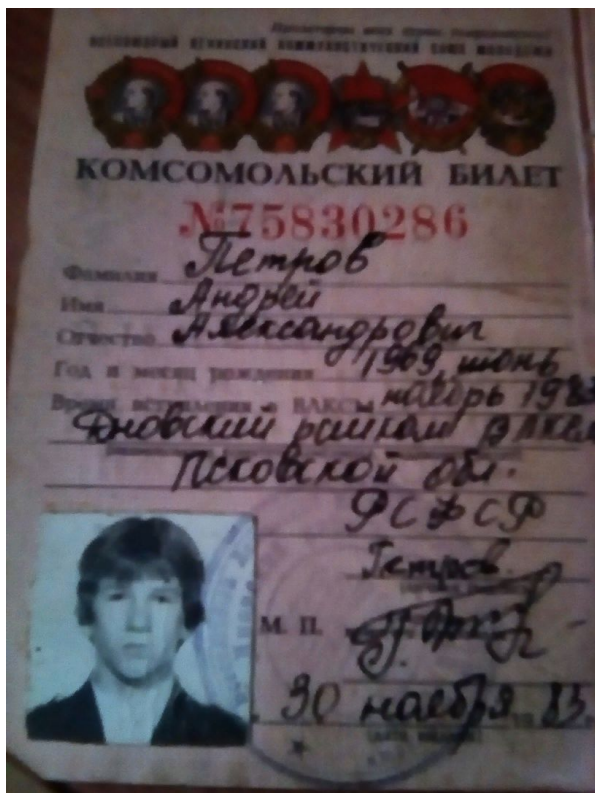 Пролетарии всех стран, соединяйтесь!
ВСЕСОЮЗНЫЙ ЛЕНИНСКИЙ КОММУНИСТИЧЕСКИЙ СОЮЗ МОЛОДЕЖИ
КОМСОМОЛЬСКИЙ БИЛЕТ
№75830286
Фамилия Петров
Имя Андрей
Отчество Александрович
Год и месяц рождения 1969, июнь
Время вступления в ВЛКСМ ноябрь 1983
Дновский райком ВЛКСМ
Псковской обл.
РСФСР
Петров
М. П.
30 ноября 83